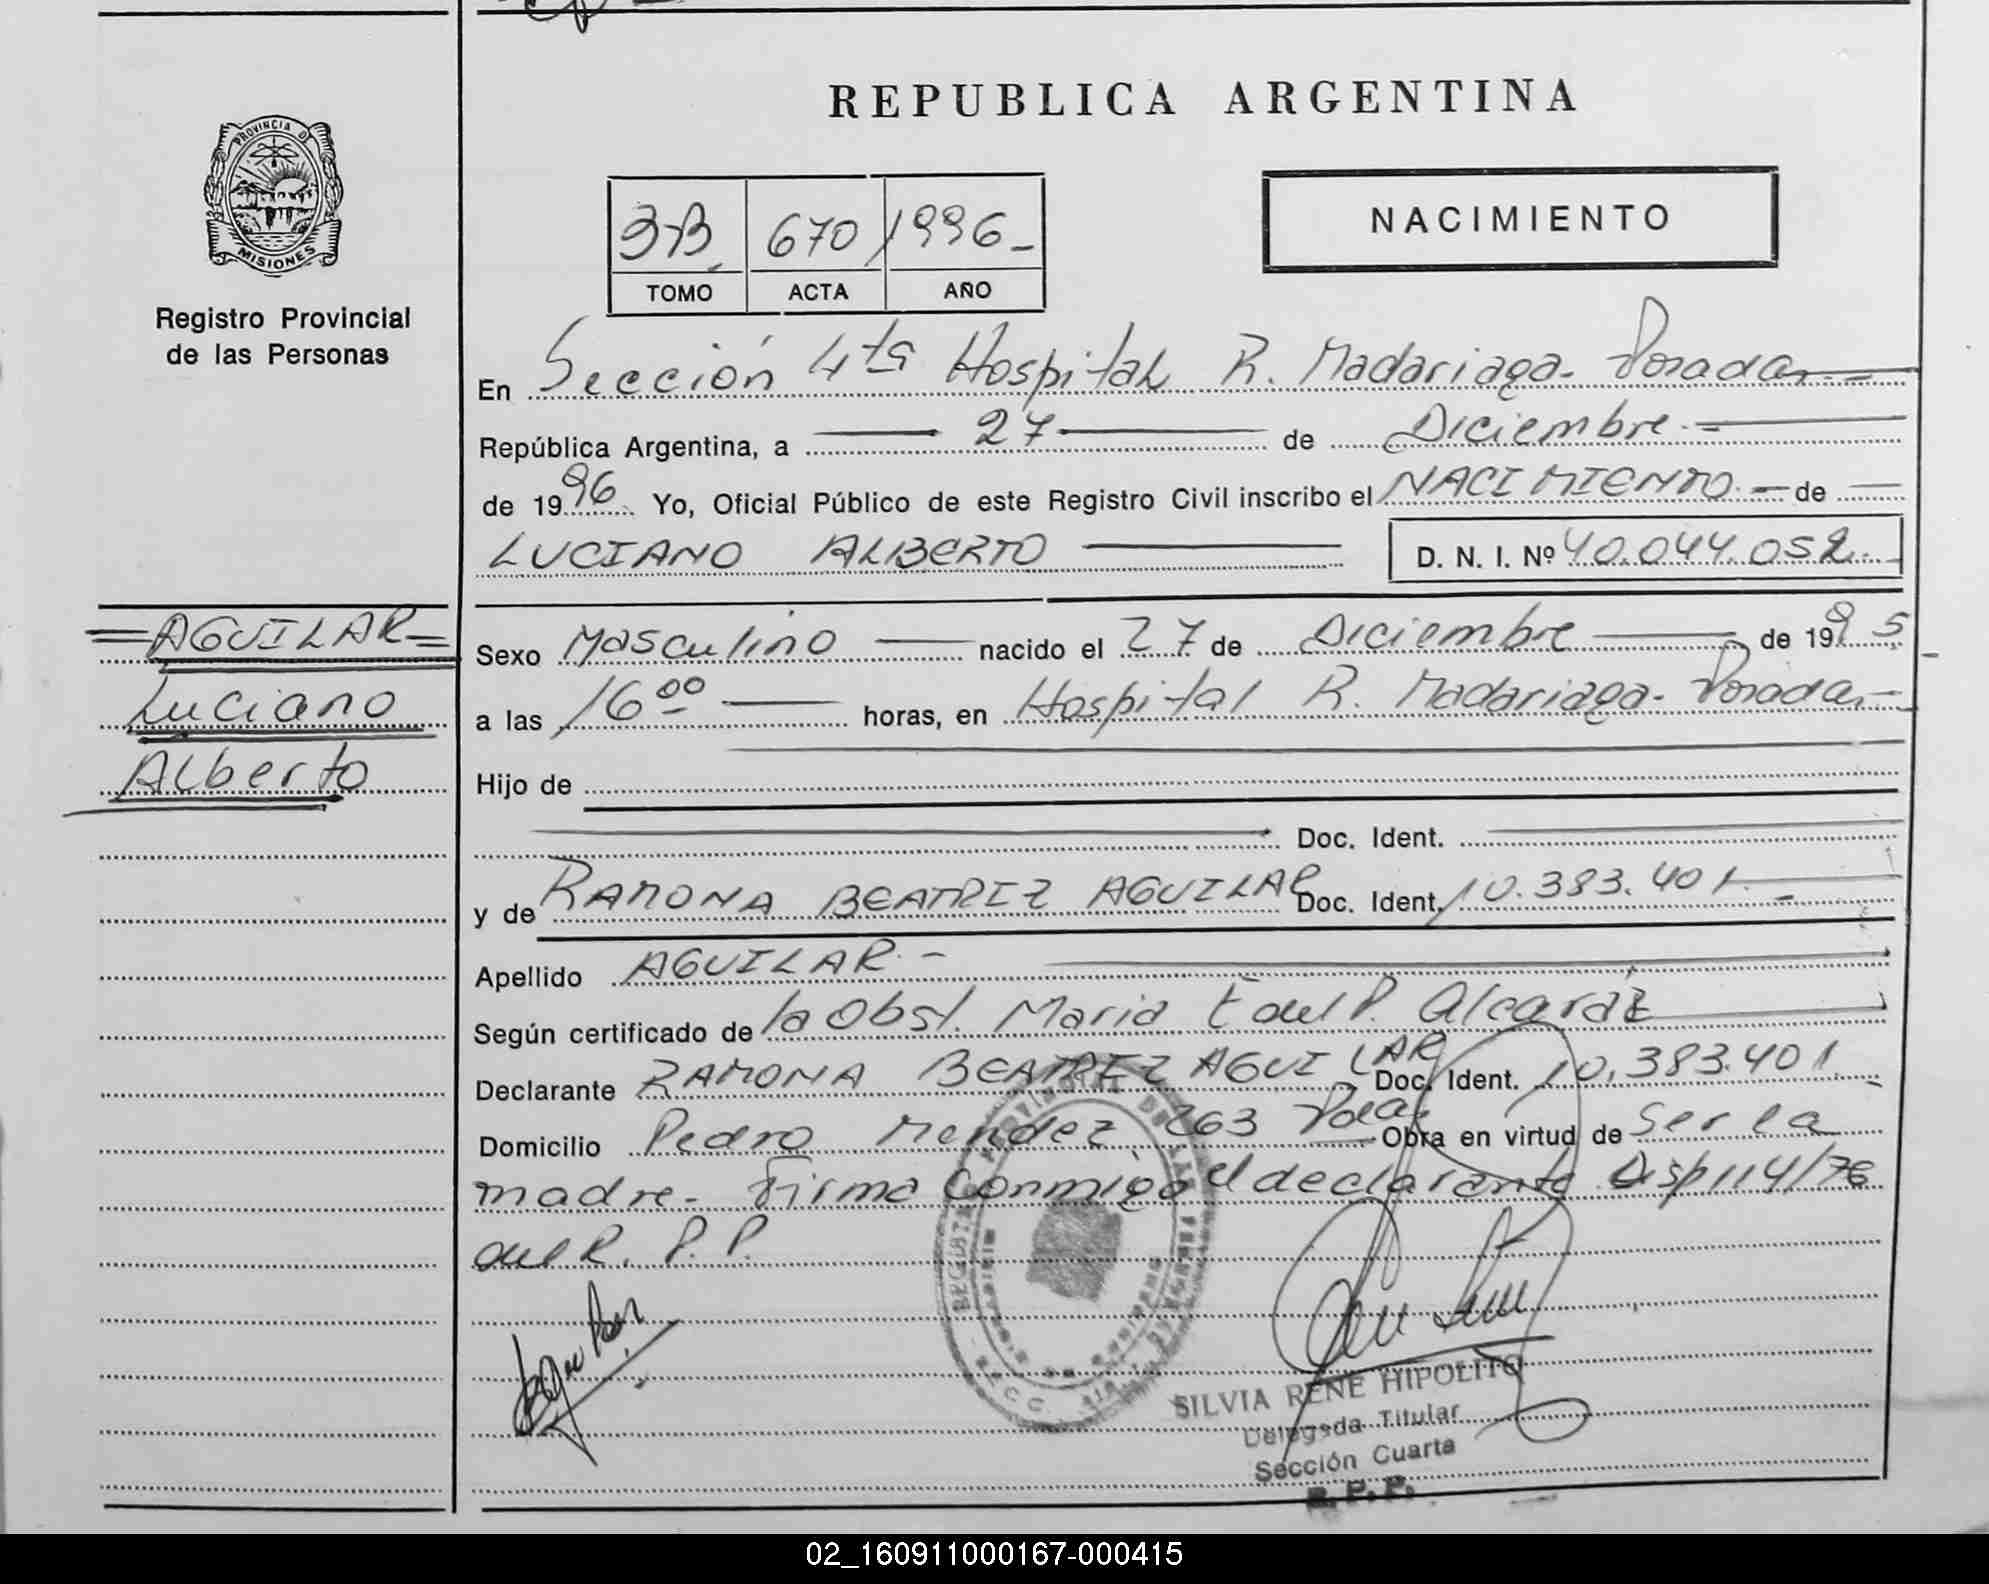 REPUBLICA ARGENTINA
PROVINCIA DE
MISIONES
Registro Provincial
de las Personas
3-B 670 1996-
TOMO ACTA AÑO
NACIMIENTO
En Sección 4ta Hospital R. Madariaga- Posadas
República Argentina, a 27 de Diciembre
de 1996 Yo, Oficial Público de este Registro Civil inscribo el NACIMIENTO de
LUCIANO ALBERTO D. N. I. Nº 40.044.052
AGUILAR
Luciano
Alberto
Sexo Masculino nacido el 27 de Diciembre de 1995
a las 16 00 horas, en Hospital R. Madariaga- Posadas
Hijo de
Doc. Ident.
y de RAMONA BEATRIZ AGUILAR Doc. Ident. 10.383.401
Apellido AGUILAR
Según certificado de la Obst. Maria E del P. Alcaraz
Declarante RAMONA BEATRIZ AGUILAR Doc. Ident. 10.383.401
Domicilio Pedro Mendez 263 Pdas Obra en virtud de Ser la
madre- Firma Conmigo el declarante Disp 114/76
del R. P. P.
SILVIA RENE HIPOLITO
Delegada Titular
Sección Cuarta
R. P. P.
02_160911000167-000415